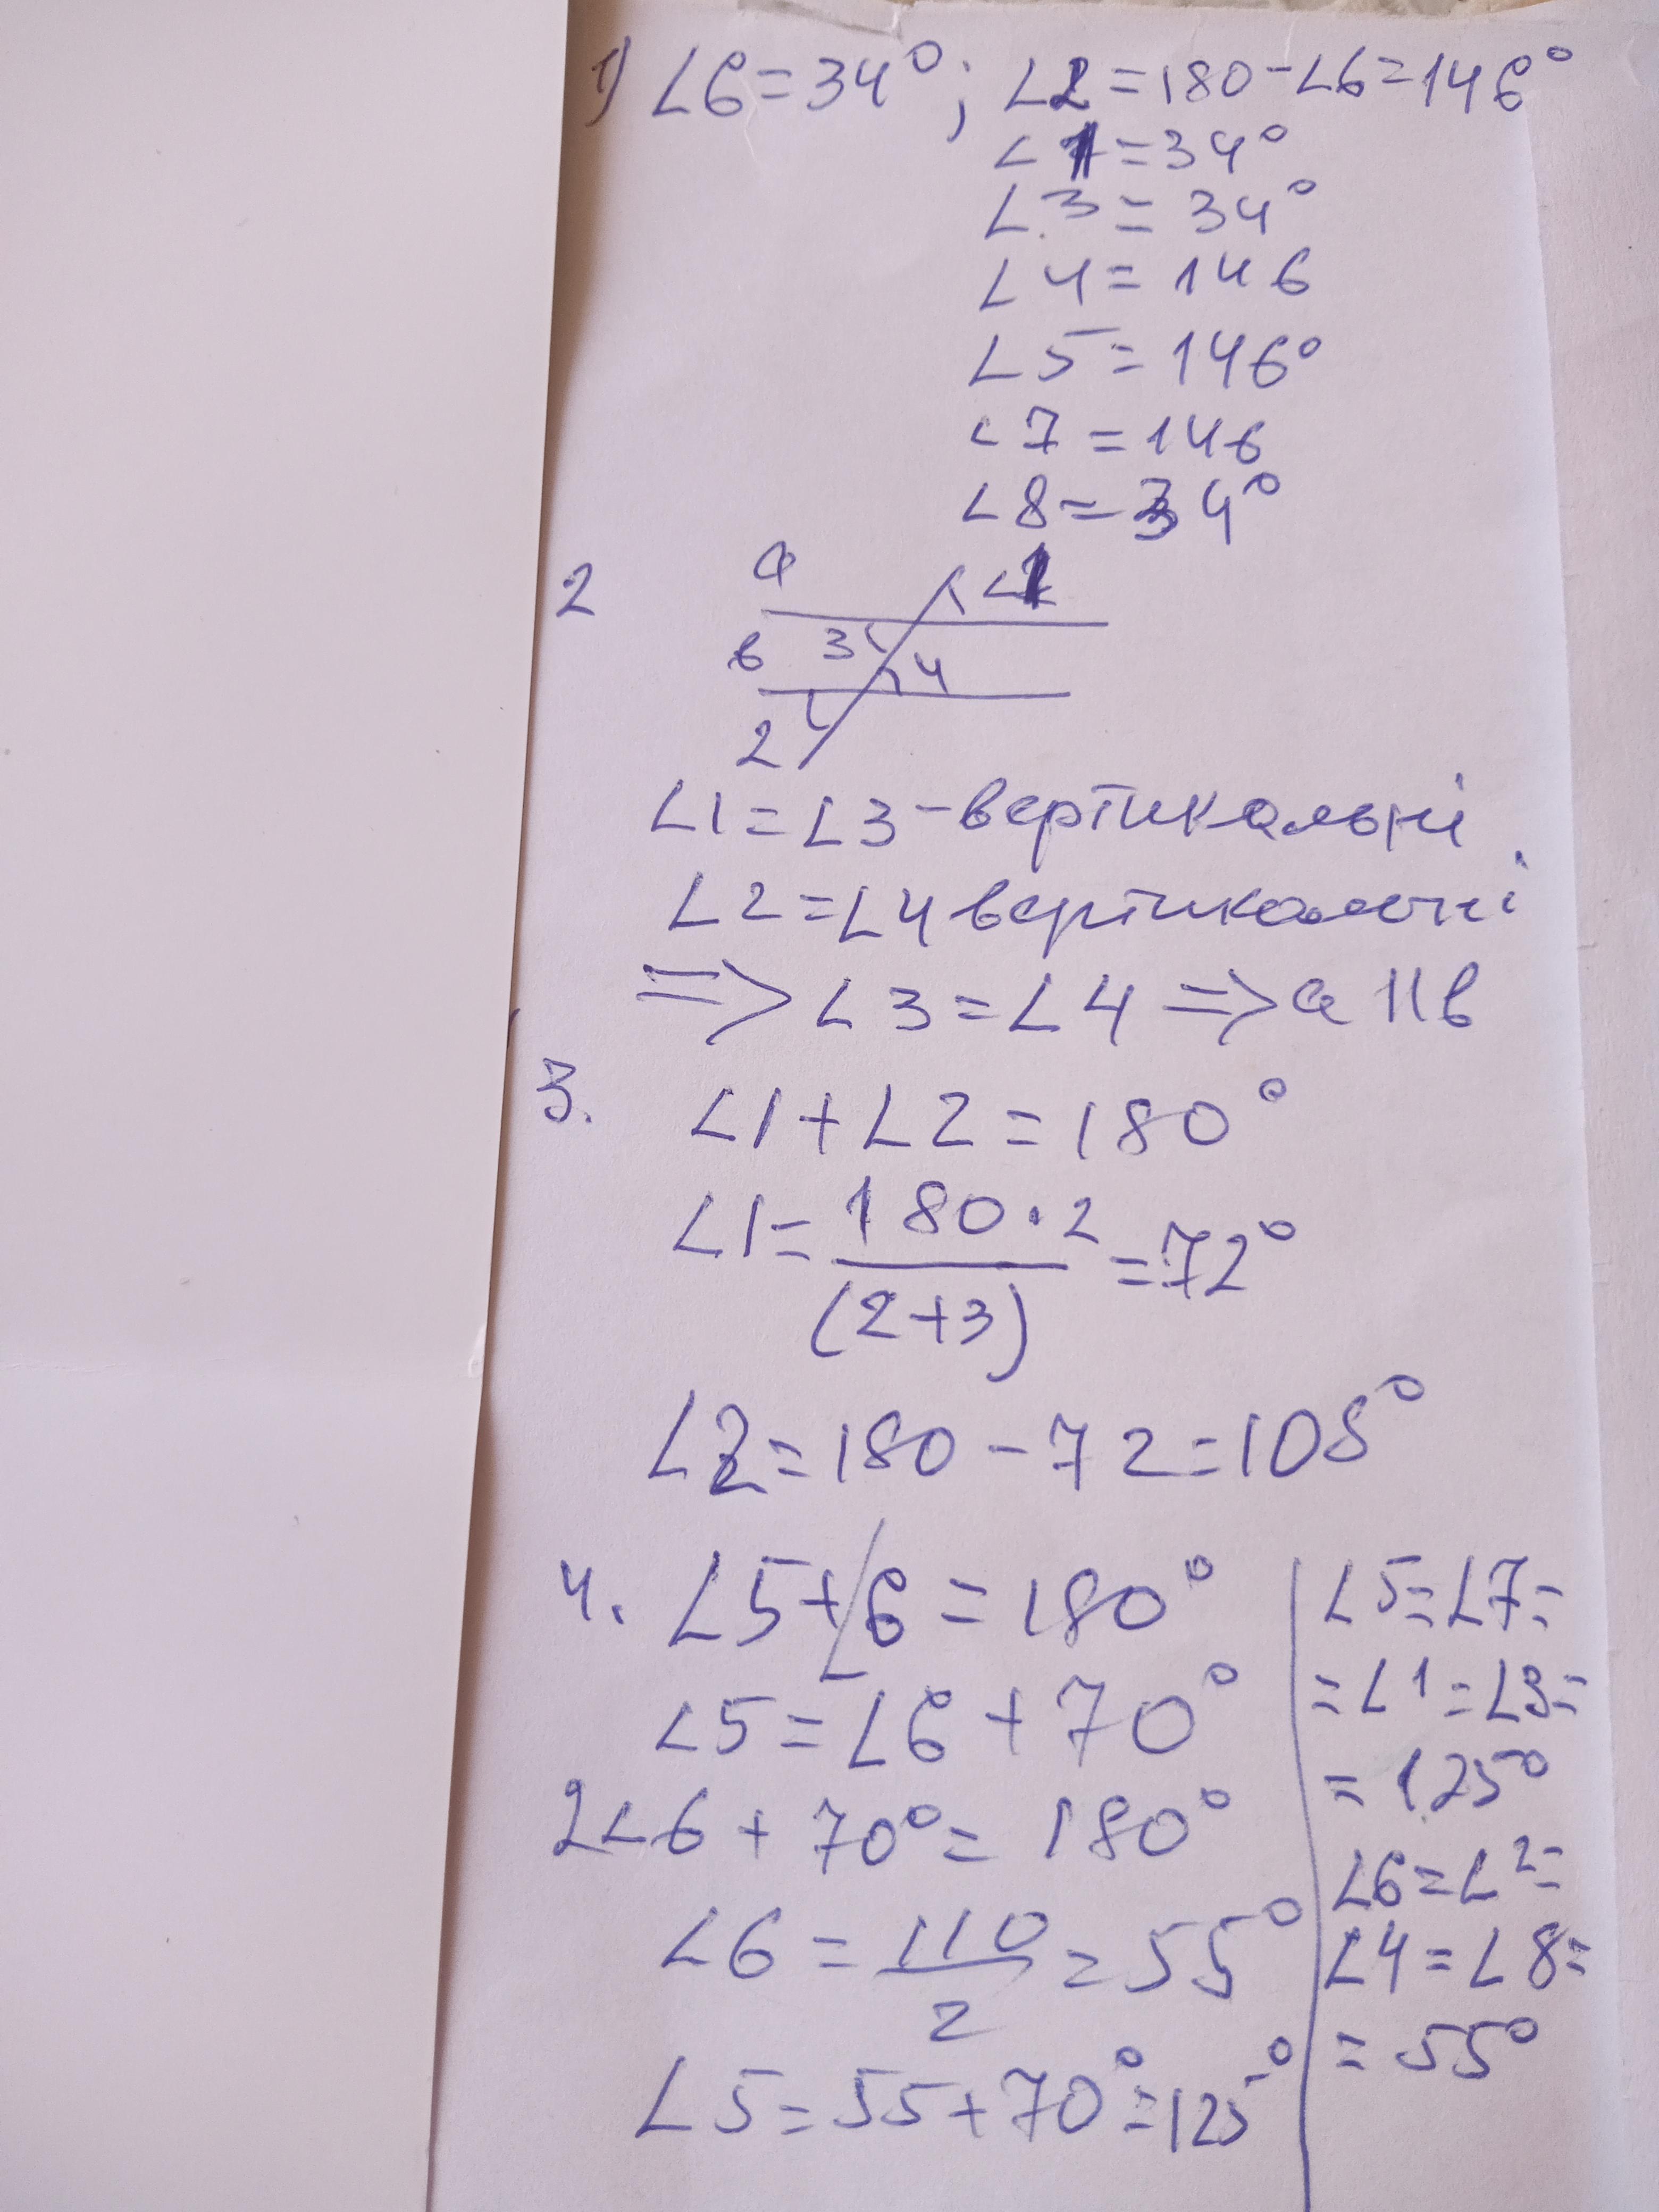 1) ∠6=34°; ∠2=180-∠6=146°
∠1=34°
∠3=34°
∠4=146
∠5=146°
∠7=146
∠8=34°
2
a
∠1
в 3
4
2
∠1=∠3-вертикальні
∠2=∠4 вертикальні
=>∠3=∠4=>a||в
3. ∠1+∠2=180°
∠1=180·2/(2+3)=72°
∠2=180-72=108°
4. ∠5+∠6=180°
∠5=∠6+70°
2∠6+70°=180°
∠6=110/2=55°
∠5=55+70°=125°
∠5=∠7=
=∠1=∠3=
=125°
∠6=∠2=
∠4=∠8=
=55°